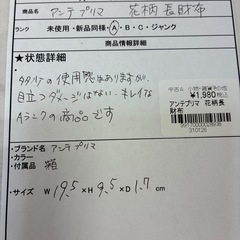 商品名 アンテプリマ 花柄長財布
ランク 未使用・新品同様・A・B・C・ジャンク
商品情報詳細
★状態詳細
多少の使用感はありますが、
目立つダメージはなく、キレイな
Aランクの商品です
中古A 小物・雑貨その他
¥1,980税込
アンテプリマ 花柄長
財布
310126
・ブランド名 アンテプリマ
・カラー
・付属品 箱
・サイズ W 19.5 × H 9.5 × D 1.7 cm